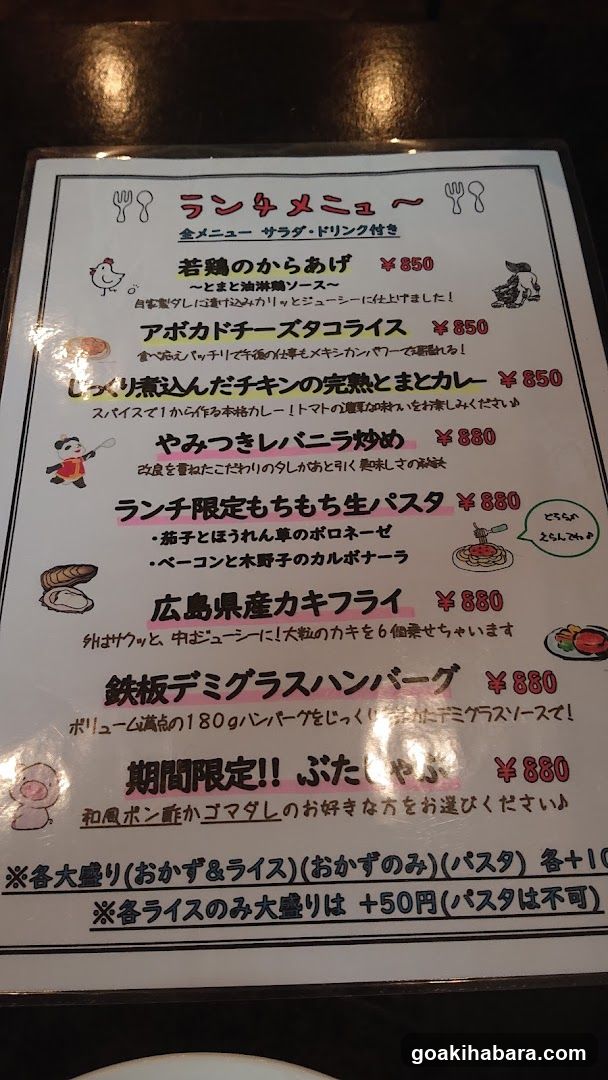 ランチメニュ～
全メニュー サラダ・ドリンク付き
若鶏のからあげ ¥850
～とまと油淋鶏ソース～
自家製ダレに漬け込みカリッとジューシーに仕上げました！
アボカドチーズタコライス ¥850
食べ応えバッチリで午後の仕事もメキシカンパワーで頑張れる！
じっくり煮込んだチキンの完熟とまとカレー ¥850
スパイスで1から作る本格カレー！トマトの濃厚な味わいをお楽しみください♪
やみつきレバニラ炒め ¥880
改良を重ねたこだわりのタレがあと引く美味しさの秘訣
ランチ限定もちもち生パスタ ¥880
・茄子とほうれん草のボロネーゼ
・ベーコンと木野子のカルボナーラ
どちらか
えらんでね♪
広島県産カキフライ ¥880
外はサクッと、中はジューシーに！大粒のカキを6個乗せちゃいます
鉄板デミグラスハンバーグ ¥880
ボリューム満点の180gハンバーグをじっくり デミグラスソースで！
期間限定!! ぶたしゃぶ ¥880
和風ポン酢かゴマダレのお好きな方をお選びください♪
※各大盛り(おかず&ライス)(おかずのみ)(パスタ) 各+10
※各ライスのみ大盛りは +50円(パスタは不可)
goakihabara.com